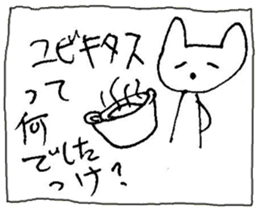 ユビキタス
って
何
でした
っけ?